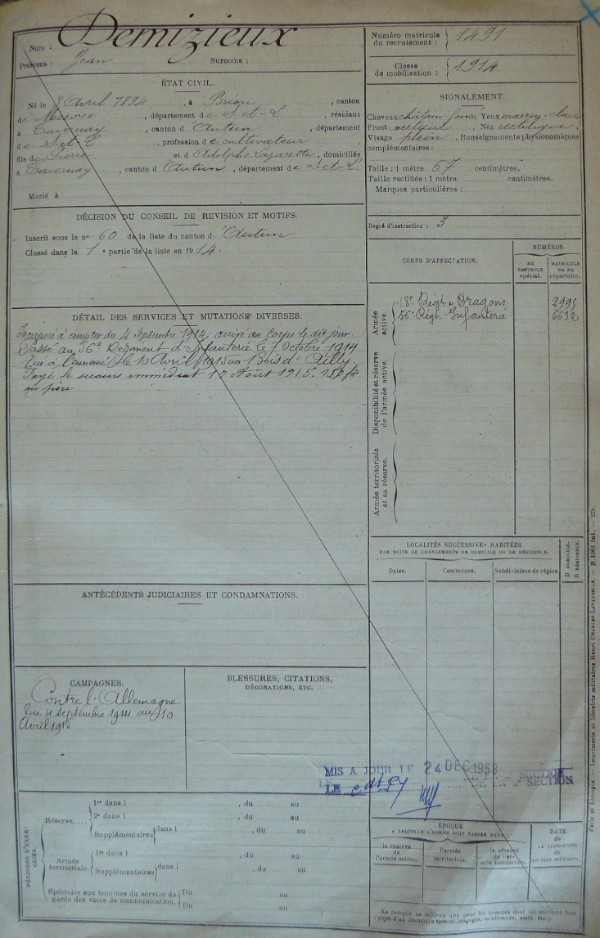 Demizieux
Nom :
Prénoms : Jean Surnoms :
Numéro matricule
du recrutement : 1491
Classe
de mobilisation : 1914
ÉTAT CIVIL.
Né le 3 Avril 1894, à Brion, canton
de Mesvres, département de S-et-L, résidant
à Tavernay, canton d'Autun, département
de S-et-L, profession de cultivateur
fils de Pierre
et d Adolphe Lazarette, domiciliés
à Tavernay, canton d'Autun, département de S-et-L.
Marié à
SIGNALEMENT.
Cheveux châtain foncé Yeux marron clair
Front vertical, Nez rectiligne,
Visage plein, Renseignements physionomiques
complémentaires :
Taille : 1 mètre 67 centimètres.
Taille rectifiée : 1 mètre centimètres.
Marques particulières :
DÉCISION DU CONSEIL DE REVISION ET MOTIFS.
Inscrit sous le n° 60 de la liste du canton d'Autun
Classé dans la 1e partie de la liste en 1914.
Degré d'instruction : 3
CORPS D'AFFECTATION.
NUMÉROS
AU CONTROLE SPÉCIAL.
MATRICULE OU AU RÉPERTOIRE.
Armée active.
Régt de Dragons 2995
56e Régt Infanterie 6632
Disponibilité et réserve de l'armée active.
Armée territoriale et sa réserve.
DÉTAIL DES SERVICES ET MUTATIONS DIVERSES.
Incorporé à compter du 4 Septembre 1914, arrivé au Corps le dit jour.
Passé au 56e Régiment d'Infanterie le 7 Octobre 1914
Tué à l'ennemi le 10 Avril 1915 au Bois d'Ailly.
Payé le secours immédiat 17 Août 1915. 150 fr
au père
LOCALITÉS SUCCESSIVES HABITÉES
PAR SUITE DE CHANGEMENTS DE DOMICILE OU DE RÉSIDENCE.
Dates. Communes. Subdivisions de région. D DOMICILE. R RÉSIDENCE.
ANTÉCÉDENTS JUDICIAIRES ET CONDAMNATIONS.
CAMPAGNES.
Contre l'Allemagne
Du 4 septembre 1914 au 10
Avril 1915
BLESSURES, CITATIONS,
DÉCORATIONS, ETC.
MIS A JOUR LE 24 DEC 1958
LE SECTION
PÉRIODES D'EXERCICES.
Réserve.
1re dans l , du au
2e dans l , du au
Supplémentaires dans l , du au
Armée territoriale.
1re dans l , du au
Supplémentaires dans l , du au
Spéciales aux hommes du service de
garde des voies de communication.
Du au
Du au
ÉPOQUE
A LAQUELLE L'HOMME DOIT PASSER DANS :
la réserve de l'armée active.
l'armée territoriale.
la réserve de l'armée territoriale.
DATE
DE LA LIBÉRATION
du service militaire.